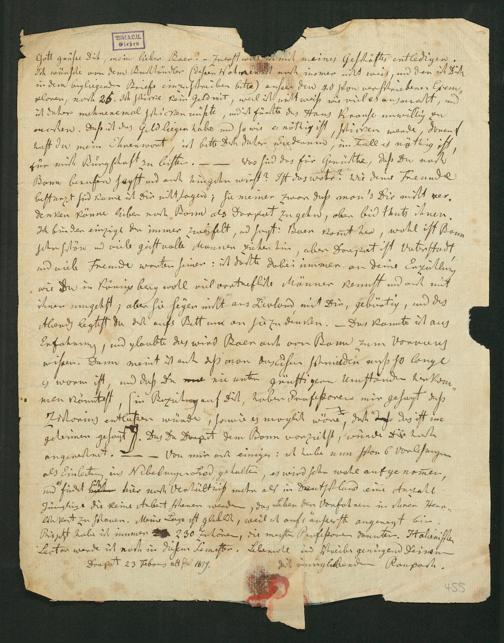 Gott grüße Dich, mein lieber Baer! – Zuerst will ich mich meines Geschäftes entledigen.
Ich wünschte von dem Buchhändler (dessen Nahmen ich noch immer nicht weiß, und den ich Dich
in dem beyliegenden Briefe einzuschreiben bitte) außer den 20 schon verschriebenen Exem-
plaren, noch 26. Ich schicke kein Geld mit, weil ich nicht weiß wie viel es ausmacht, und
ich daher mehreremal schicken müßte, und ich fürchte des Hans Krause unwillig zu
machen. Daß ich das Geld liegen habe und so wie es nöthig ist, schicken werde, darauf
hast Du mein Ehrenwort, ich bitte Dich daher wiederum, im Fall es nöthig ist,
für mich Bürgschaft zu leisten. — Was sind das für Gerüchte, daß Du nach
Bonn berufen seyst und auch hingehn wirst? Ist das wahr? Wie Deine Freunde
bestürzt sind kann ich Dir nicht sagen; sie meinen zwar daß man's Dir nicht ver-
denken könne lieber nach Bonn als Dorpat zu gehn, aber leid thuts ihnen.
Ich bin der einzige der immer zweifelt, und sagt: Baer kommt her, wohl ist Bonn
sehr schön und viele geistvolle Männer ziehen hin, aber Dorpat ist Vaterstadt,
und viele Freunde warten seiner: ich dachte dabei immer an Deine Erzählung,
wie Du in Königsberg wohl viel vortreffliche Männer kennst und auch mit
ihnen umgehst; aber sie seyen nicht aus Livland mit Dir, gebürtig, und des
Abends legtest Du Dich aufs Bett um an sie zu denken. – Das kannte ich aus
Erfahrung, und glaubte das wird Baer auch von Bonn zum voraus
wissen. Dann meint ich auch daß man das Eisen schmieden muß so lange
es warm ist, und daß Du nie unter günstigern Umständen herkom-
men könntest, in Beziehung auf Dich, haben Professoren mir gesagt daß
Cichorius entlassen würde, sowie es möglich wäre,
geheimen gesagt. Daß Du Dorpat dem Bonn vorziehst, würde Dir hoch
angerechnet. — Von mir auch einiges: ich habe nun schon 6 Vorlesungen
als Einleitung ins Nibelungenlied gehalten, es wird sehr wohl aufgenommen,
und findet hier nach Verhältniß mehr als in Deutschland eine Anzahl
Günstige die keine Arbeit scheuen werden, das Leben der Vorfahren in ihrer Herr-
lichkeit zu schauen. Meine Lage ist glücklich, weil ich aufs äußerste angeregt bin.
habe ich immer 230 Zuhörer, die meisten Professoren darunter. Italienischer
Lector werde ich noch in diesem Semester. Lebewohl und schreibe genügend Deinem
Dorpat 23 Febr 1819. Dich innigliebenden Raupach.
455